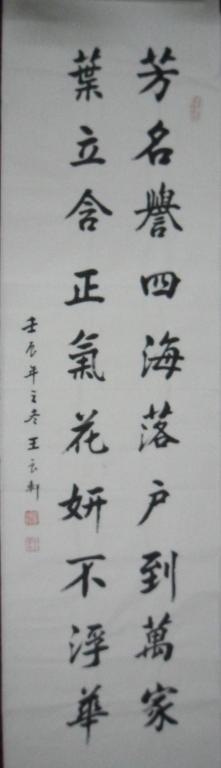 芳名譽四海落户到萬家
葉立含正氣花妍不浮華
壬辰年之冬王玄軒